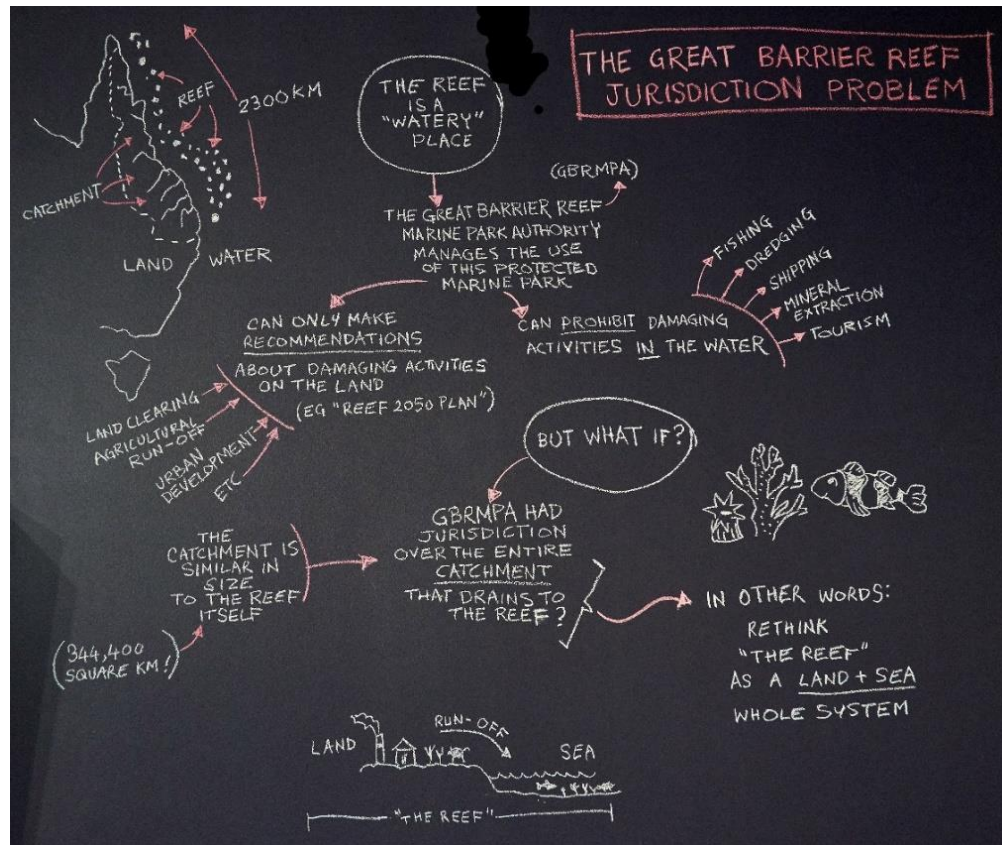 THE GREAT BARRIER REEF
JURISDICTION PROBLEM
REEF
2300 KM
CATCHMENT
LAND
WATER
THE REEF
IS A
"WATERY"
PLACE
(GBRMPA)
THE GREAT BARRIER REEF
MARINE PARK AUTHORITY
MANAGES THE USE
OF THIS PROTECTED
MARINE PARK
CAN ONLY MAKE
RECOMMENDATIONS
ABOUT DAMAGING ACTIVITIES
ON THE LAND
(EG "REEF 2050 PLAN")
LAND CLEARING
AGRICULTURAL
RUN-OFF
URBAN
DEVELOPMENT
ETC
CAN PROHIBIT DAMAGING
ACTIVITIES IN THE WATER
FISHING
DREDGING
SHIPPING
MINERAL
EXTRACTION
TOURISM
BUT WHAT IF?
GBRMPA HAD
JURISDICTION
OVER THE ENTIRE
CATCHMENT
THAT DRAINS TO
THE REEF?
THE
CATCHMENT IS
SIMILAR IN
SIZE
TO THE REEF
ITSELF
(344,400
SQUARE KM!)
IN OTHER WORDS:
RETHINK
"THE REEF"
AS A LAND + SEA
WHOLE SYSTEM
LAND
RUN-OFF
SEA
"THE REEF"